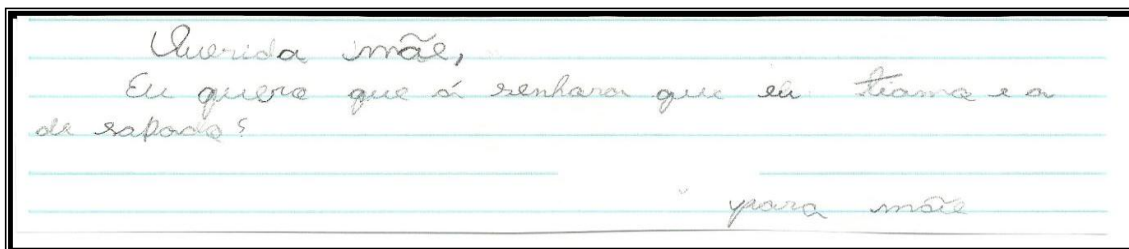 Querida mãe,
Eu quero que á senhara que eu tiamo e a
de sapado?
para mãe